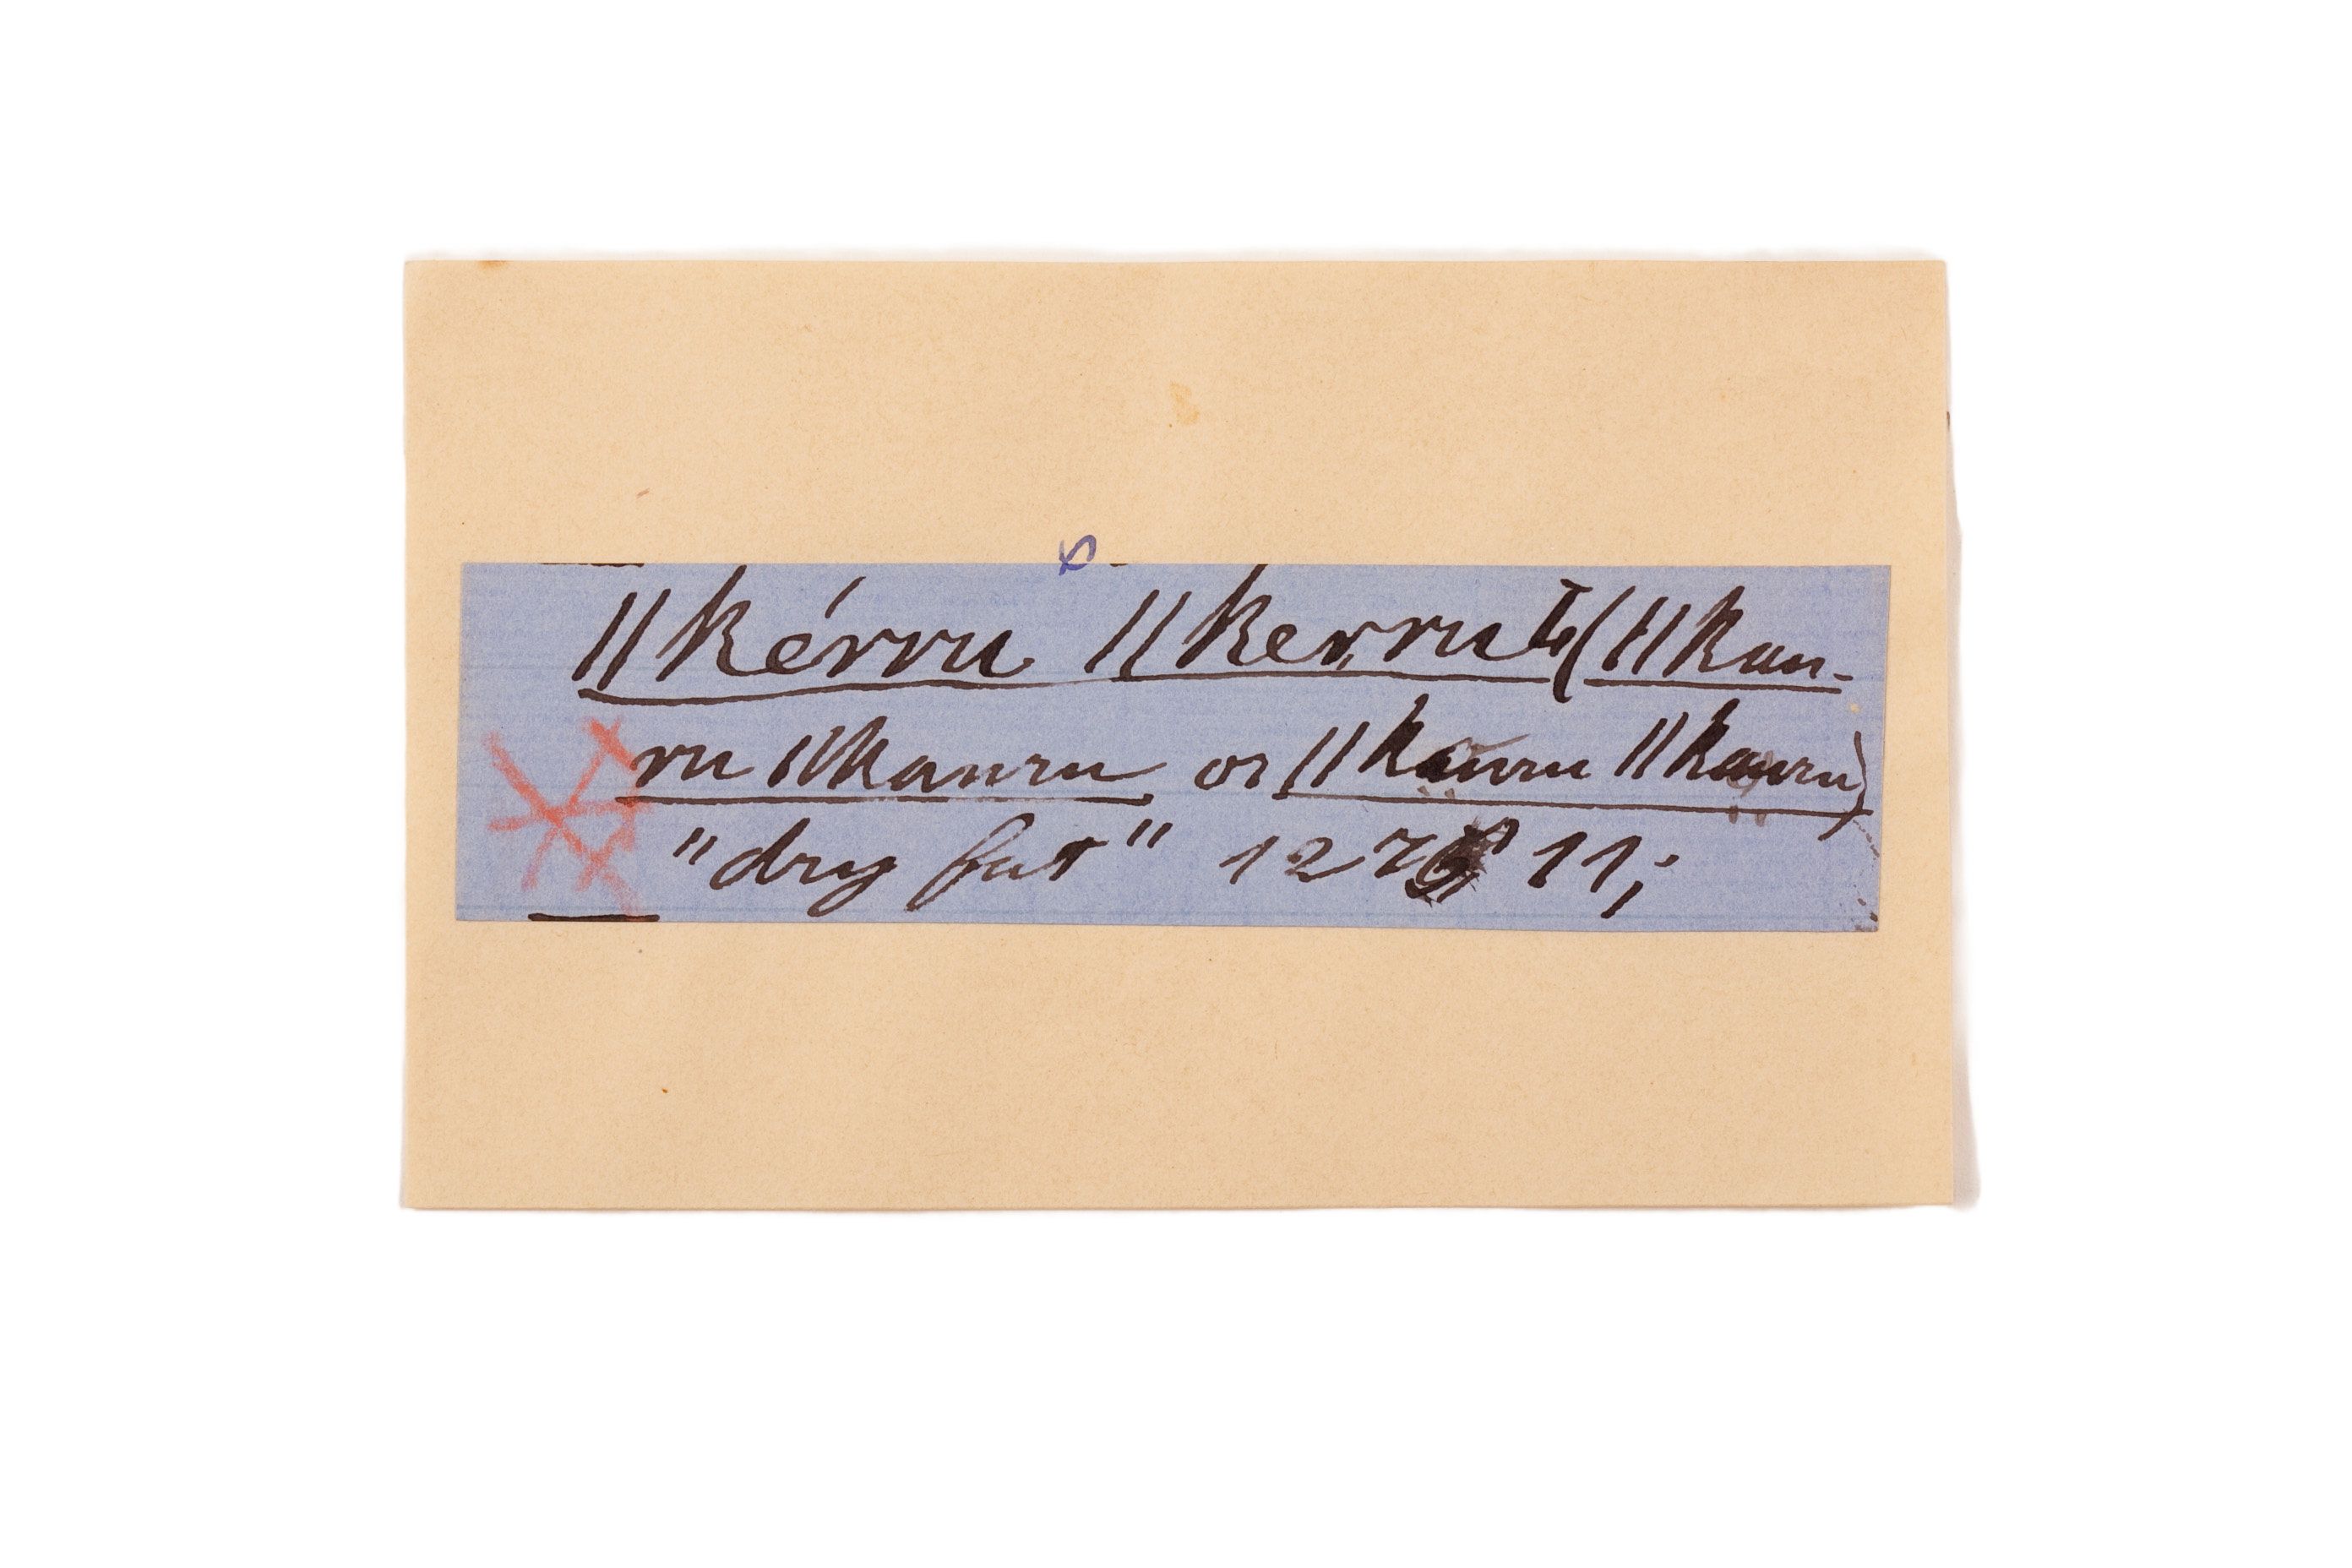 ||kérru ||kerru (||kau-
ru ||kauru or ||kauru ||kauru)
"dry fat" 127 11;